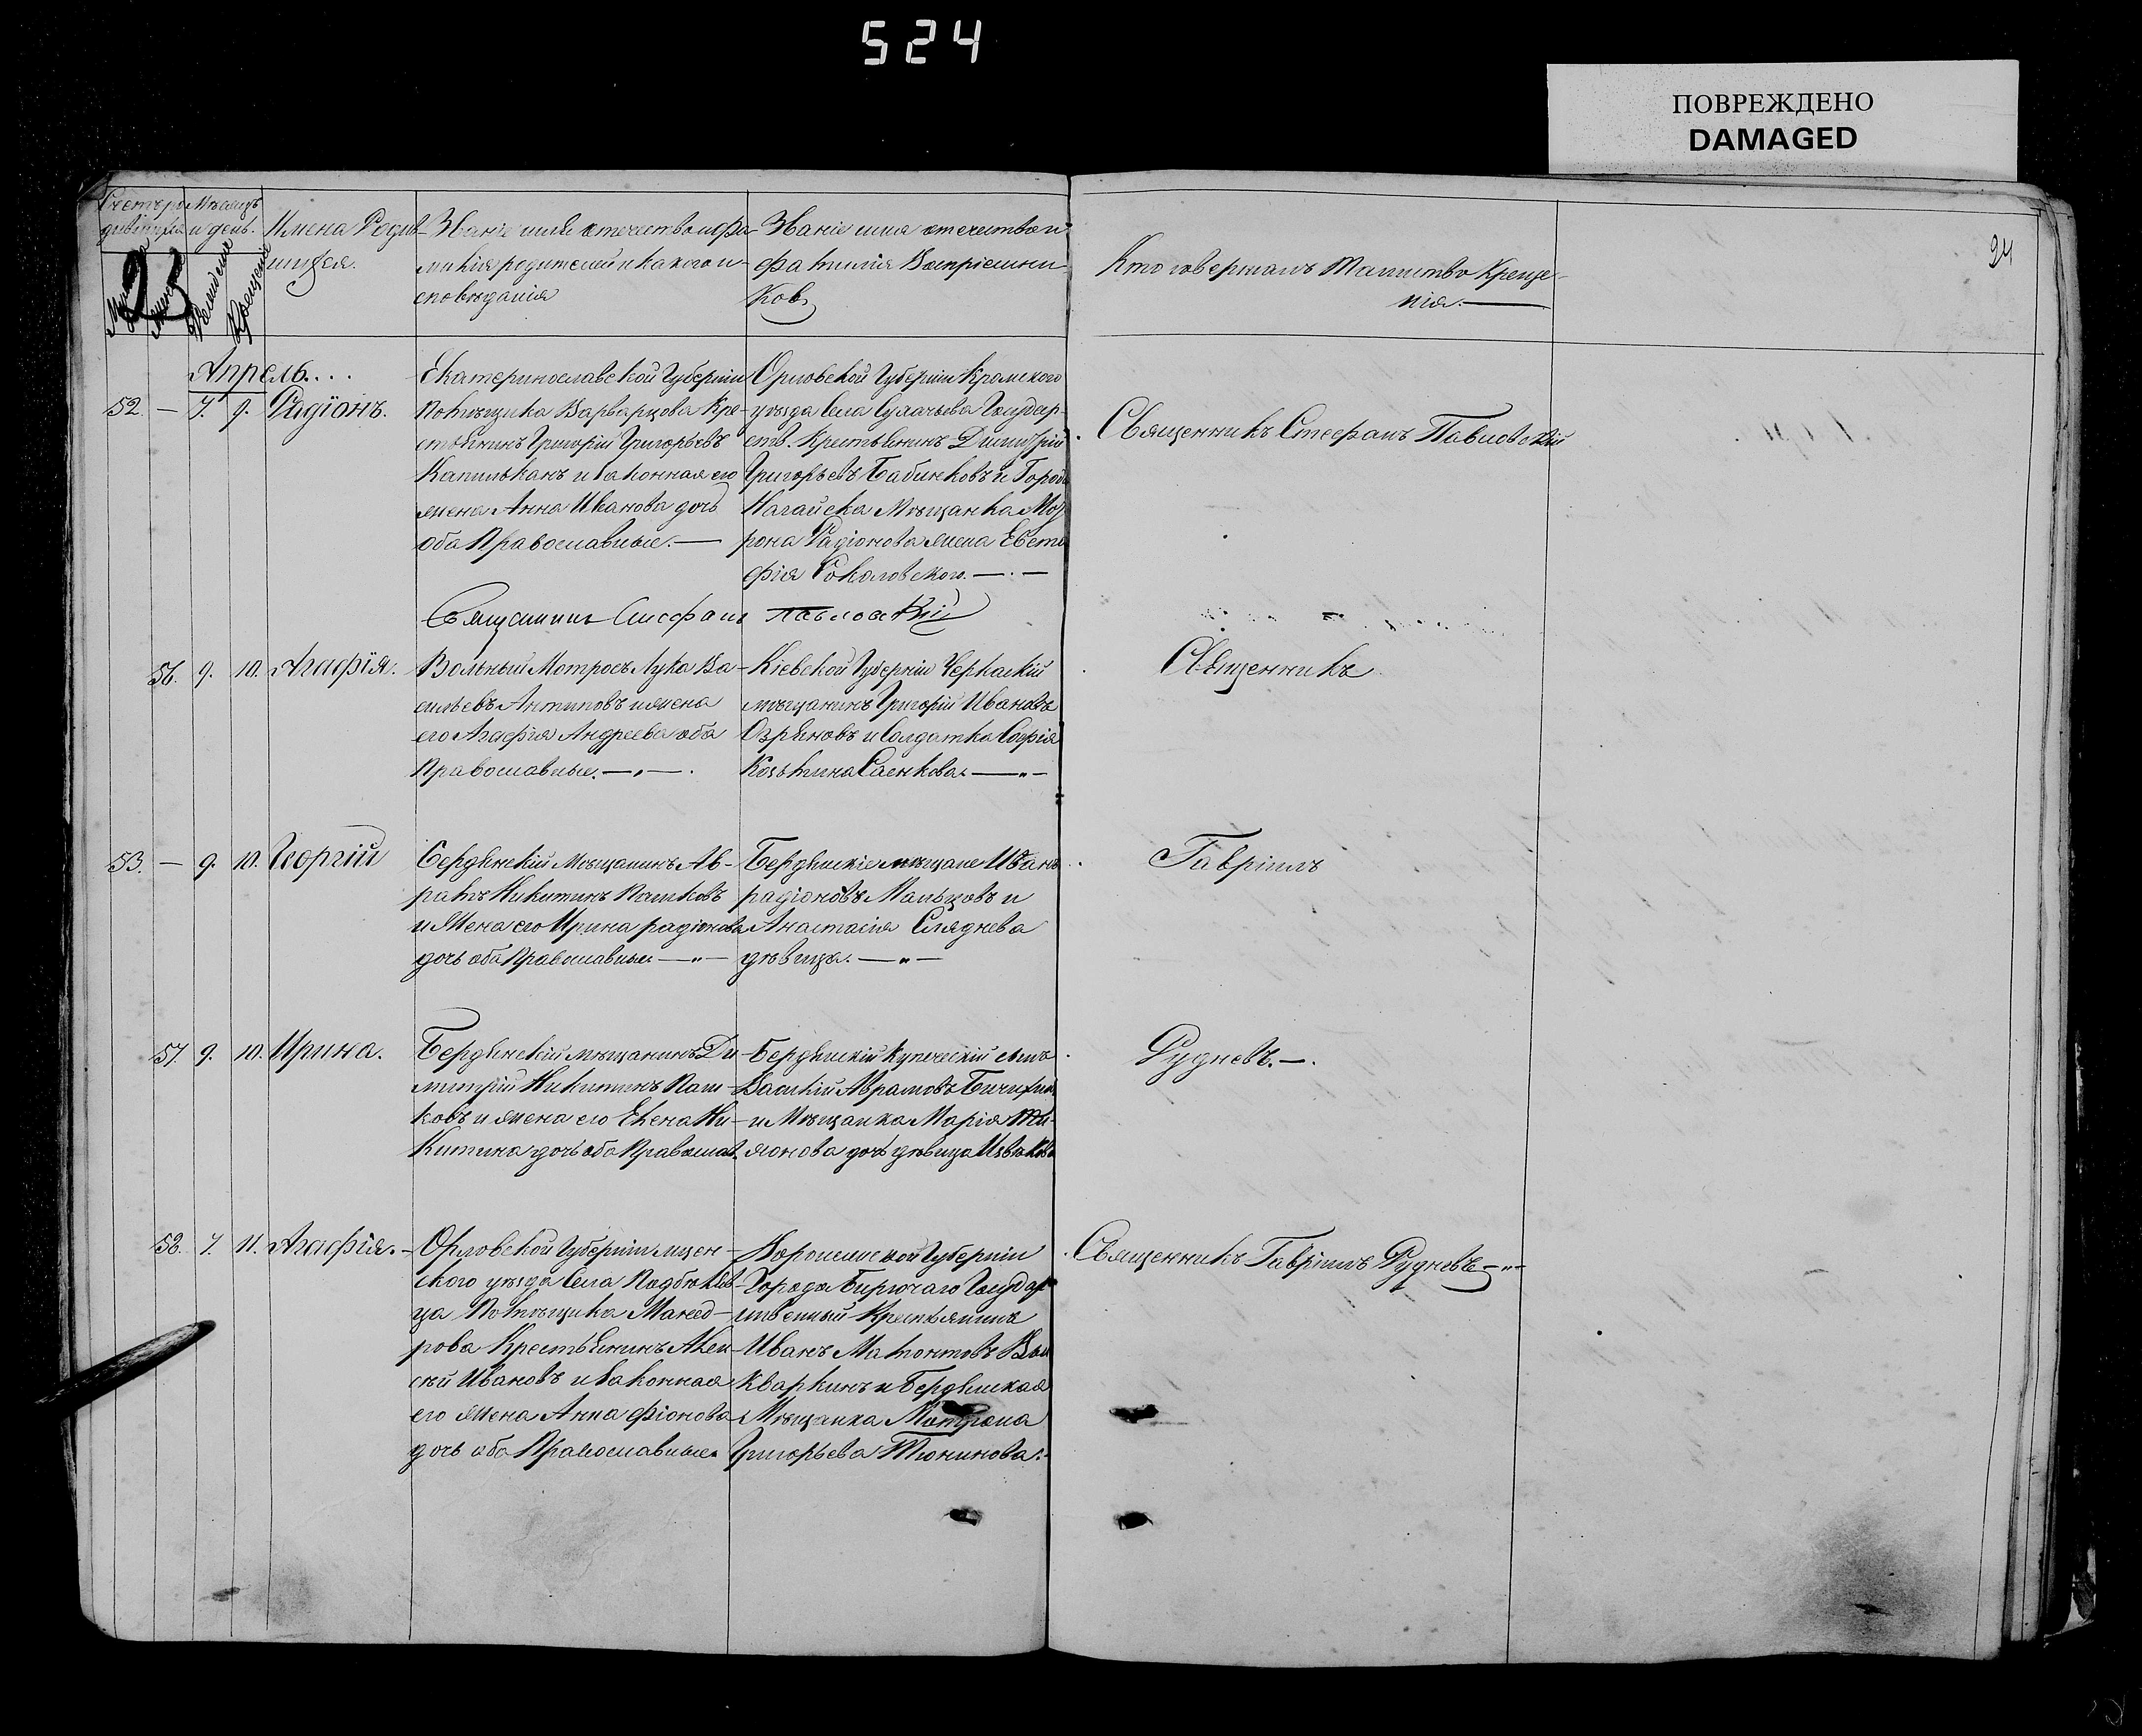 524
ПОВРЕЖДЕНО
DAMAGED
24
25
Мѣсяцъ
и день.
Имена Родив-
шихся.
Званіе имя отечество и фа-
милія родителей и какого и-
сповѣданія
Званіе имя отечество и
фамилія Воспріемни-
ковъ
Кто совершалъ Таинство Креще-
нія.
Апрель....
52. — 7. 9. Радіонъ.
Екатеринославской Губерніи
Помѣщика Варварцова Кре-
стьянинъ Григорій Григорьевъ
и законная его
жена Анна Иванова дочь
оба Православные.—
Орловской Губерніи Кромского
уѣзда Села Государ-
ств. Крестьянинъ Димитрій
Григорьевъ Бабинковъ и Города
Нагайска Мѣщанка
Радіонова жена
Соколовского.—.—
Священникъ Стефанъ Павловскій
Священникъ Стефанъ Павловскій
56. 9. 10. Агафія.
Вольный Матросъ Лука Ва-
сильевъ Антиповъ и жена
его Агафія Андреева оба
Православные.—„—.
Кіевской Губерніи Черкаскій
мѣщанинъ Григорій Ивановъ
и Солдатка Софія
Козьмина Саенкова.—„—
Священникъ
53. — 9. 10. Георгій
Бердянскій Мѣщанинъ Ав-
рамъ Никитинъ Пашковъ
и Жена его Ирина радіонова
дочь оба Православные —„—
Бердянскіе мѣщане Иванъ
радіоновъ Мальцовъ и
Анастасія Сляднева
дѣвица.—„—
Гавріилъ
57. 9. 10. Ирина.
Бердянскій мѣщанинъ Ди-
митрій Никитинъ Паш-
ковъ и жена его Елена Ни-
китина дочь оба Православ.
Бердянскій Купеческій сынъ
Василій Аврамовъ
и Мѣщанка Марія
дочь дѣвица
Рудневъ.—.
58. 7. 11. Агафія.
Орловской Губерніи мцен-
ского уѣзда Села
Помѣщика
Крестьянинъ Алек-
сѣй Ивановъ и законная
его жена Анна фіонова
дочь оба Православные.
Воронежской Губерніи
Города Бирючаго Государ-
ственный Крестьянинъ
Иванъ
и Бердянская
Мѣщанка Матрона
Григорьева Тюнинова.
Священникъ Гавріилъ Рудневъ—„—